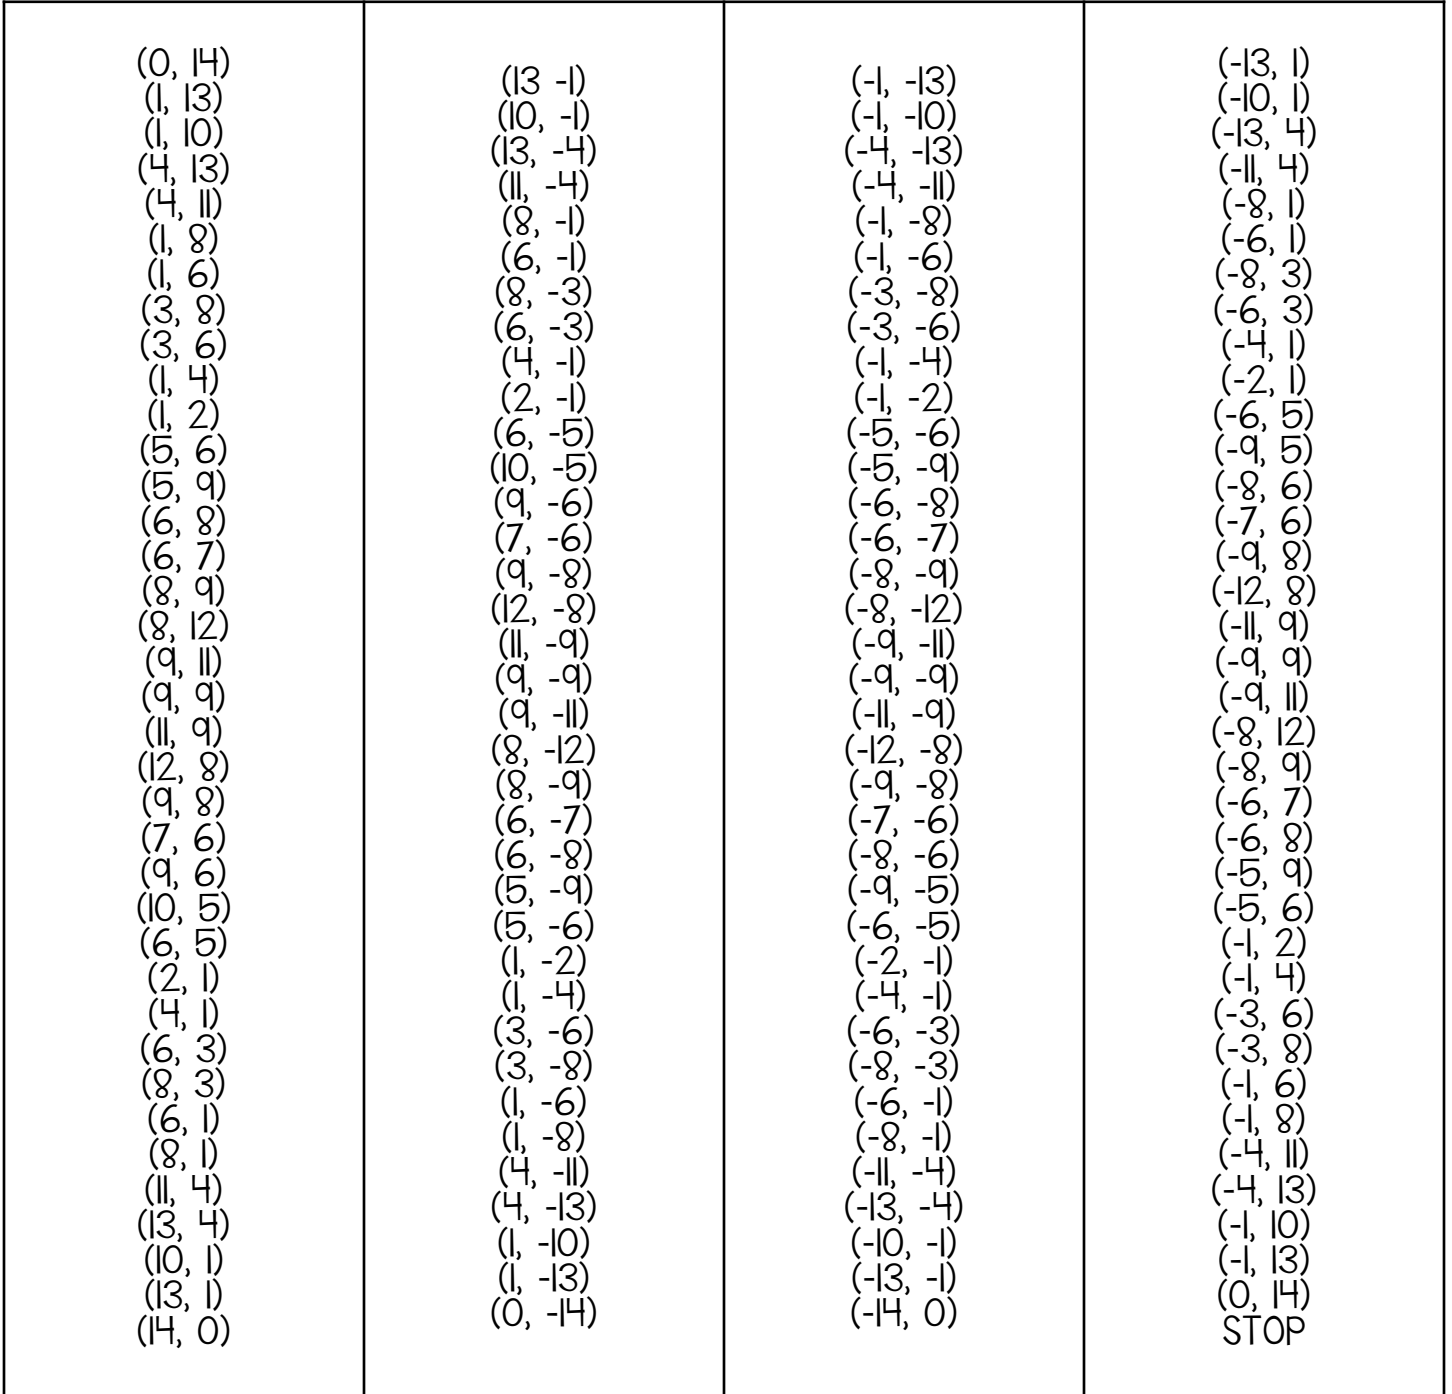 (0, 14)
(1, 13)
(1, 10)
(4, 13)
(4, 11)
(1, 8)
(1, 6)
(3, 8)
(3, 6)
(1, 4)
(1, 2)
(5, 6)
(5, 9)
(6, 8)
(6, 7)
(8, 9)
(8, 12)
(9, 11)
(9, 9)
(11, 9)
(12, 8)
(9, 8)
(7, 6)
(9, 6)
(10, 5)
(6, 5)
(2, 1)
(4, 1)
(6, 3)
(8, 3)
(6, 1)
(8, 1)
(11, 4)
(13, 4)
(10, 1)
(13, 1)
(14, 0)
(13 -1)
(10, -1)
(13, -4)
(11, -4)
(8, -1)
(6, -1)
(8, -3)
(6, -3)
(4, -1)
(2, -1)
(6, -5)
(10, -5)
(9, -6)
(7, -6)
(9, -8)
(12, -8)
(11, -9)
(9, -9)
(9, -11)
(8, -12)
(8, -9)
(6, -7)
(6, -8)
(5, -9)
(5, -6)
(1, -2)
(1, -4)
(3, -6)
(3, -8)
(1, -6)
(1, -8)
(4, -11)
(4, -13)
(1, -10)
(1, -13)
(0, -14)
(-1, -13)
(-1, -10)
(-4, -13)
(-4, -11)
(-1, -8)
(-1, -6)
(-3, -8)
(-3, -6)
(-1, -4)
(-1, -2)
(-5, -6)
(-5, -9)
(-6, -8)
(-6, -7)
(-8, -9)
(-8, -12)
(-9, -11)
(-9, -9)
(-11, -9)
(-12, -8)
(-9, -8)
(-7, -6)
(-8, -6)
(-9, -5)
(-6, -5)
(-2, -1)
(-4, -1)
(-6, -3)
(-8, -3)
(-6, -1)
(-8, -1)
(-11, -4)
(-13, -4)
(-10, -1)
(-13, -1)
(-14, 0)
(-13, 1)
(-10, 1)
(-13, 4)
(-11, 4)
(-8, 1)
(-6, 1)
(-8, 3)
(-6, 3)
(-4, 1)
(-2, 1)
(-6, 5)
(-9, 5)
(-8, 6)
(-7, 6)
(-9, 8)
(-12, 8)
(-11, 9)
(-9, 9)
(-9, 11)
(-8, 12)
(-8, 9)
(-6, 7)
(-6, 8)
(-5, 9)
(-5, 6)
(-1, 2)
(-1, 4)
(-3, 6)
(-3, 8)
(-1, 6)
(-1, 8)
(-4, 11)
(-4, 13)
(-1, 10)
(-1, 13)
(0, 14)
STOP